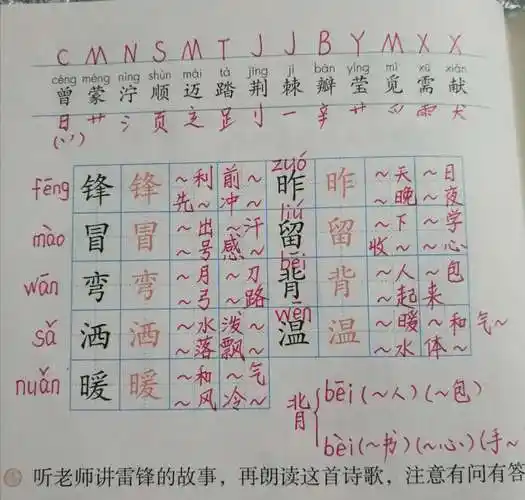 C M N S M T J J B Y M X X
céng méng nìng shùn mài tà jīng jí bàn yíng mì xū xiàn
曾 蒙 泞 顺 迈 踏 荆 棘 瓣 莹 觅 需 献
日 艹 氵 页 辶 𧾷 刂 一 辛 艹 爫 雨 犬
(丷)
fēng 锋 锋 ~利 前~ zuó 昨 昨 ~天 ~日
先~ 冲~ ~晚 ~夜
mào 冒 冒 ~出 ~汗 liú 留 留 ~下 ~学
~号 感~ 收~ ~心
wān 弯 弯 ~月 ~刀 bēi 背 背 ~人 ~包
~弓 ~路 ~起来
sǎ 洒 洒 ~水 泼~ wēn 温 温 ~暖 ~和 气~
~落 飘~ ~水 体~
nuǎn 暖 暖 ~和 ~气
~风 冷~
背 bēi(~人)(~包)
bèi(~书)(~心)(手~
听老师讲雷锋的故事，再朗读这首诗歌，注意有问有答